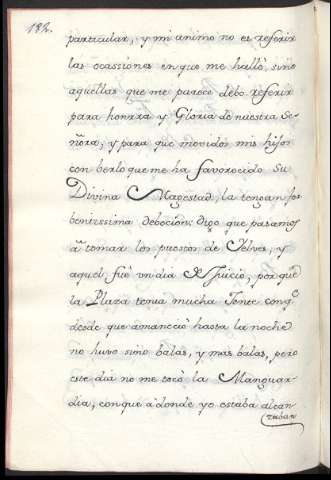 182.
particular, y mi animo no es referir
las ocassiones en que me hallò, sino
aquellas que me parece debo referir
para honrra y Gloria de nuestra Se-
ñora, y para que movidos mis hijos
con ver lo que me ha favorecido Su
Divina Magestad, la tengan fer
bentissima debocion: digo que pasamos
à tomar los puestos de Yelves, y
aquel fuè un dia de Juicio, porque
la Plaza tenia mucha Jente conq.e
desde que amaneciò hasta la noche
no huvo sino balas, y mas balas, pero
este dia no me tocò la Manguar-
dia, conque a donde yo estaba alcan
zaban